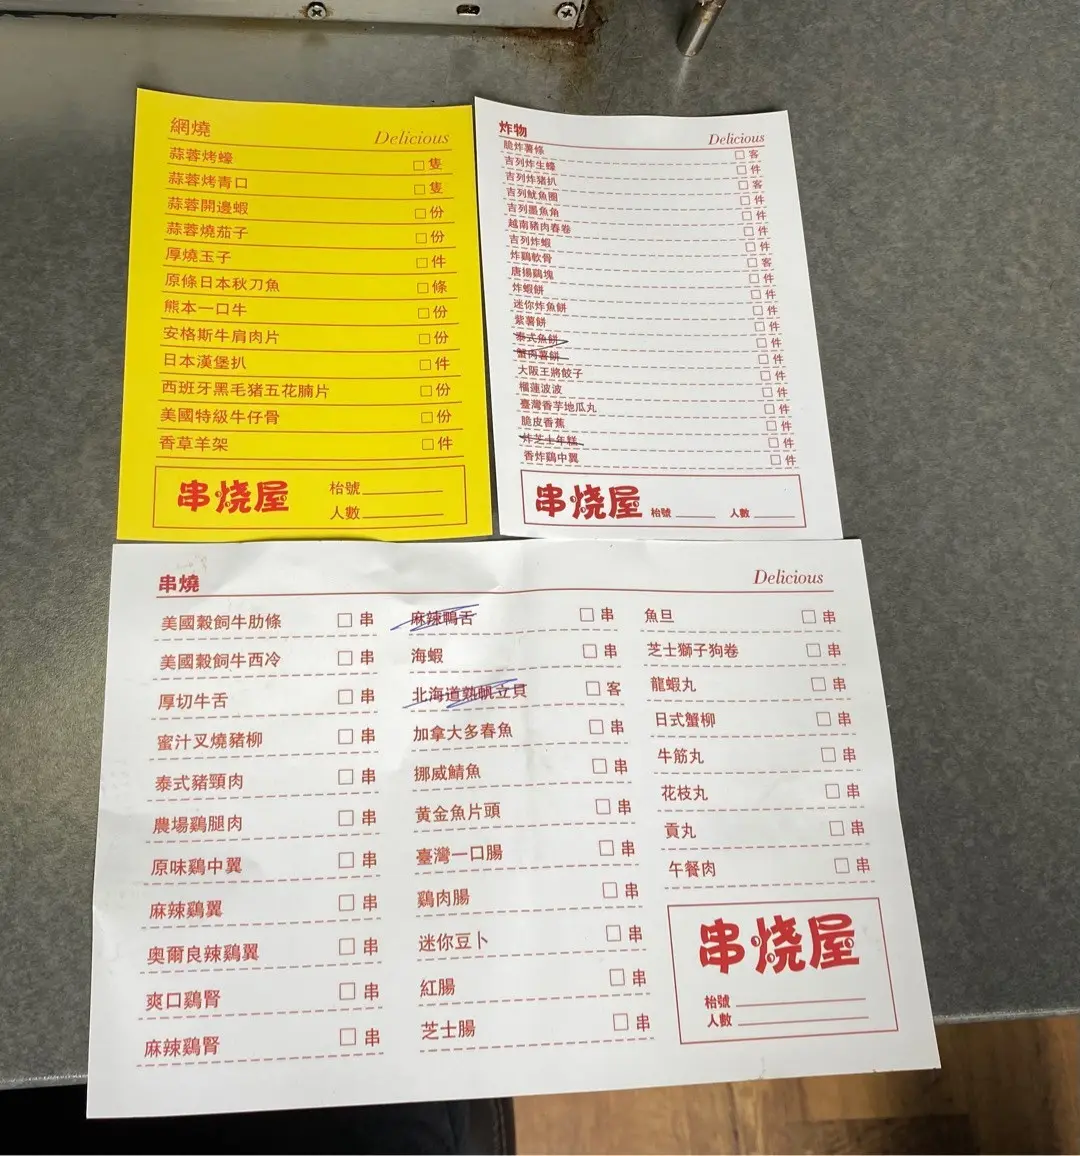 網燒
Delicious
蒜蓉烤蠔 □ 隻
蒜蓉烤青口 □ 隻
蒜蓉開邊蝦 □ 份
蒜蓉燒茄子 □ 份
厚燒玉子 □ 件
原條日本秋刀魚 □ 條
熊本一口牛 □ 份
安格斯牛肩肉片 □ 份
日本漢堡扒 □ 件
西班牙黑毛猪五花腩片 □ 份
美國特級牛仔骨 □ 份
香草羊架 □ 件
串烧屋
枱號
人數
炸物
Delicious
脆炸薯條 □ 客
吉列炸生蠔 □ 件
吉列炸豬扒 □ 客
吉列魷魚圈 □ 件
吉列墨魚角 □ 件
越南豬肉春卷 □ 件
吉列炸蝦 □ 件
炸鷄軟骨 □ 客
唐揚鷄塊 □ 件
炸蝦餅 □ 件
迷你炸魚餅 □ 件
紫薯餅 □ 件
泰式魚餅 □ 件
蟹肉薯餅 □ 件
大阪王將餃子 □ 件
榴蓮波波 □ 件
臺灣香芋地瓜丸 □ 件
脆皮香蕉 □ 件
炸芝士年糕 □ 件
香炸鷄中翼 □ 件
串烧屋
枱號
人數
串燒
Delicious
美國穀飼牛肋條 □ 串
美國穀飼牛西冷 □ 串
厚切牛舌 □ 串
蜜汁叉燒豬柳 □ 串
泰式豬頸肉 □ 串
農場鷄腿肉 □ 串
原味鷄中翼 □ 串
麻辣鷄翼 □ 串
奥爾良辣鷄翼 □ 串
爽口鷄腎 □ 串
麻辣鷄腎 □ 串
麻辣鴨舌 □ 串
海蝦 □ 串
北海道熟帆立貝 □ 客
加拿大多春魚 □ 串
挪威鯖魚 □ 串
黄金魚片頭 □ 串
臺灣一口腸 □ 串
鷄肉腸 □ 串
迷你豆卜 □ 串
紅腸 □ 串
芝士腸 □ 串
魚旦 □ 串
芝士獅子狗卷 □ 串
龍蝦丸 □ 串
日式蟹柳 □ 串
牛筋丸 □ 串
花枝丸 □ 串
貢丸 □ 串
午餐肉 □ 串
串烧屋
枱號
人數